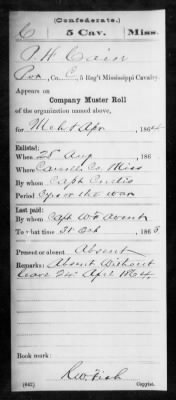 (Confederate.)
C 5 Cav. Miss.
P H Cain
Pvt, Co. E, 5 Reg't Mississippi Cavalry.
Appears on
Company Muster Roll
of the organization named above,
for Mch & Apr, 1864
Enlisted:
When 28 Aug, 186
Where Carroll Co. Miss
By whom Capt Curtis
Period 3 yrs or the war
Last paid:
By whom Capt W. Avent
To what time 31 Oct, 1863
Present or absent Absent
Remarks: Absent Without
leave 24 April 1864.
Book work:
Copyist.